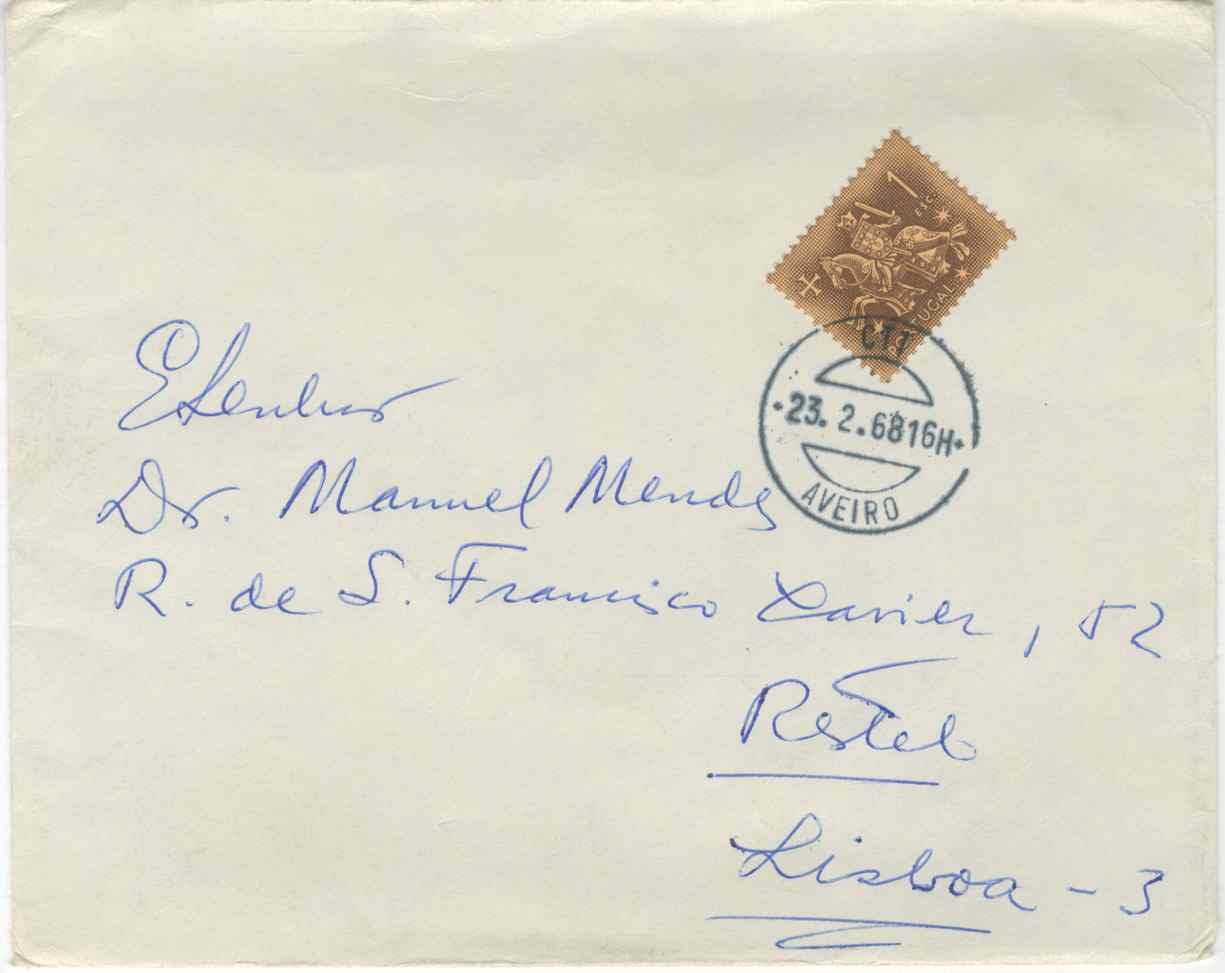 1
ESC.
PORTUGAL
CTT
23. 2.68 16H
AVEIRO
Dr. Manuel Mendes
R. de S. Francisco Xavier, 52
Restelo
Lisboa - 3